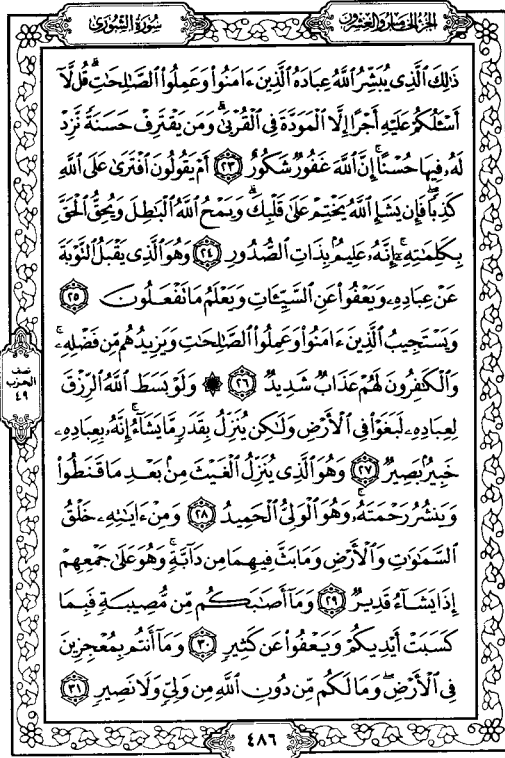 الجزء الخامس والعشرون
سورة الشورى
ذَٰلِكَ ٱلَّذِى يُبَشِّرُ ٱللَّهُ عِبَادَهُ ٱلَّذِينَ ءَامَنُوا۟ وَعَمِلُوا۟ ٱلصَّـٰلِحَـٰتِ ۗ قُل لَّآ
أَسْـَٔلُكُمْ عَلَيْهِ أَجْرًا إِلَّا ٱلْمَوَدَّةَ فِى ٱلْقُرْبَىٰ ۗ وَمَن يَقْتَرِفْ حَسَنَةً نَّزِدْ
لَهُۥ فِيهَا حُسْنًا ۚ إِنَّ ٱللَّهَ غَفُورٌ شَكُورٌ ٢٣ أَمْ يَقُولُونَ ٱفْتَرَىٰ عَلَى ٱللَّهِ
كَذِبًا ۖ فَإِن يَشَإِ ٱللَّهُ يَخْتِمْ عَلَىٰ قَلْبِكَ ۗ وَيَمْحُ ٱللَّهُ ٱلْبَـٰطِلَ وَيُحِقُّ ٱلْحَقَّ
بِكَلِمَـٰتِهِۦٓ ۚ إِنَّهُۥ عَلِيمٌۢ بِذَاتِ ٱلصُّدُورِ ٢٤ وَهُوَ ٱلَّذِى يَقْبَلُ ٱلتَّوْبَةَ
عَنْ عِبَادِهِۦ وَيَعْفُوا۟ عَنِ ٱلسَّيِّـَٔاتِ وَيَعْلَمُ مَا تَفْعَلُونَ ٢٥
وَيَسْتَجِيبُ ٱلَّذِينَ ءَامَنُوا۟ وَعَمِلُوا۟ ٱلصَّـٰلِحَـٰتِ وَيَزِيدُهُم مِّن فَضْلِهِۦ ۚ
وَٱلْكَـٰفِرُونَ لَهُمْ عَذَابٌ شَدِيدٌ ٢٦ ۞ وَلَوْ بَسَطَ ٱللَّهُ ٱلرِّزْقَ
نصف
الحزب
٤٩
لِعِبَادِهِۦ لَبَغَوْا۟ فِى ٱلْأَرْضِ وَلَـٰكِن يُنَزِّلُ بِقَدَرٍ مَّا يَشَآءُ ۚ إِنَّهُۥ بِعِبَادِهِۦ
خَبِيرٌۢ بَصِيرٌ ٢٧ وَهُوَ ٱلَّذِى يُنَزِّلُ ٱلْغَيْثَ مِنۢ بَعْدِ مَا قَنَطُوا۟
وَيَنشُرُ رَحْمَتَهُۥ ۚ وَهُوَ ٱلْوَلِىُّ ٱلْحَمِيدُ ٢٨ وَمِنْ ءَايَـٰتِهِۦ خَلْقُ
ٱلسَّمَـٰوَٰتِ وَٱلْأَرْضِ وَمَا بَثَّ فِيهِمَا مِن دَآبَّةٍ ۚ وَهُوَ عَلَىٰ جَمْعِهِمْ
إِذَا يَشَآءُ قَدِيرٌ ٢٩ وَمَآ أَصَـٰبَكُم مِّن مُّصِيبَةٍ فَبِمَا
كَسَبَتْ أَيْدِيكُمْ وَيَعْفُوا۟ عَن كَثِيرٍ ٣٠ وَمَآ أَنتُم بِمُعْجِزِينَ
فِى ٱلْأَرْضِ ۖ وَمَا لَكُم مِّن دُونِ ٱللَّهِ مِن وَلِىٍّ وَلَا نَصِيرٍ ٣١
٤٨٦